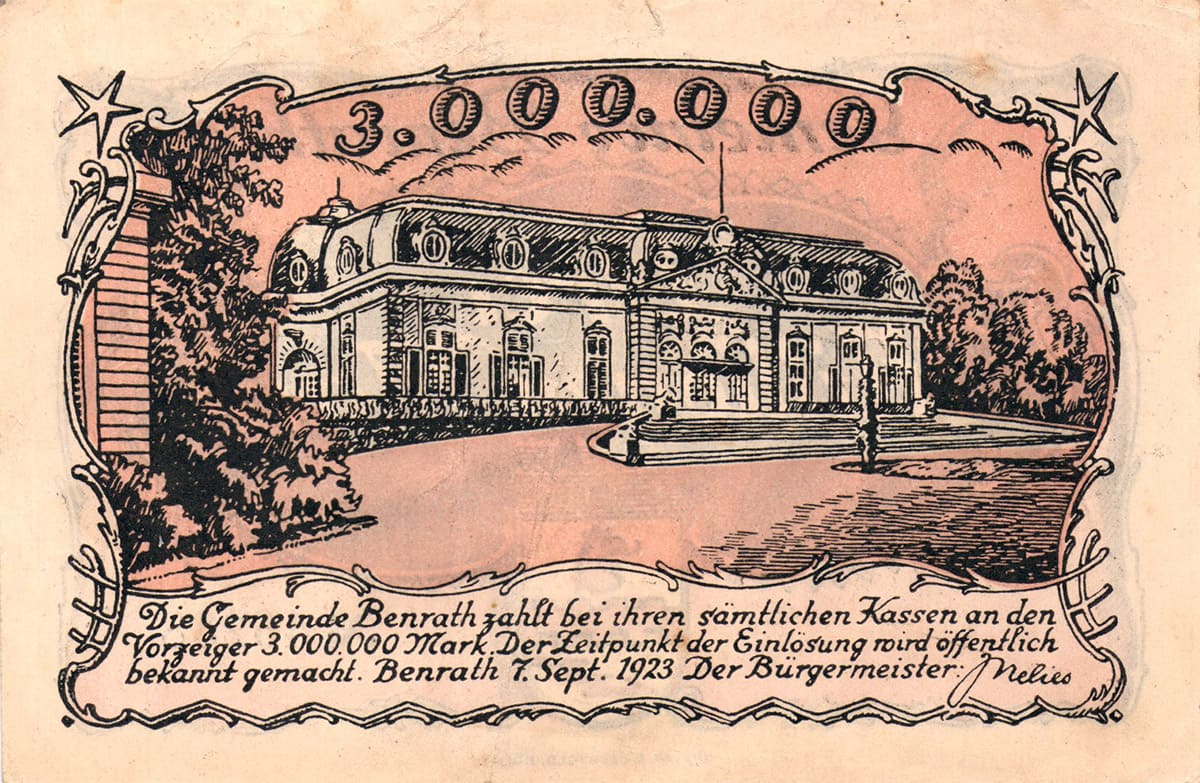 3.000.000
Die Gemeinde Benrath zahlt bei ihren sämtlichen Kassen an den
Vorzeiger 3.000.000 Mark. Der Zeitpunkt der Einlösung wird öffentlich
bekannt gemacht. Benrath 7. Sept. 1923 Der Bürgermeister: Melies